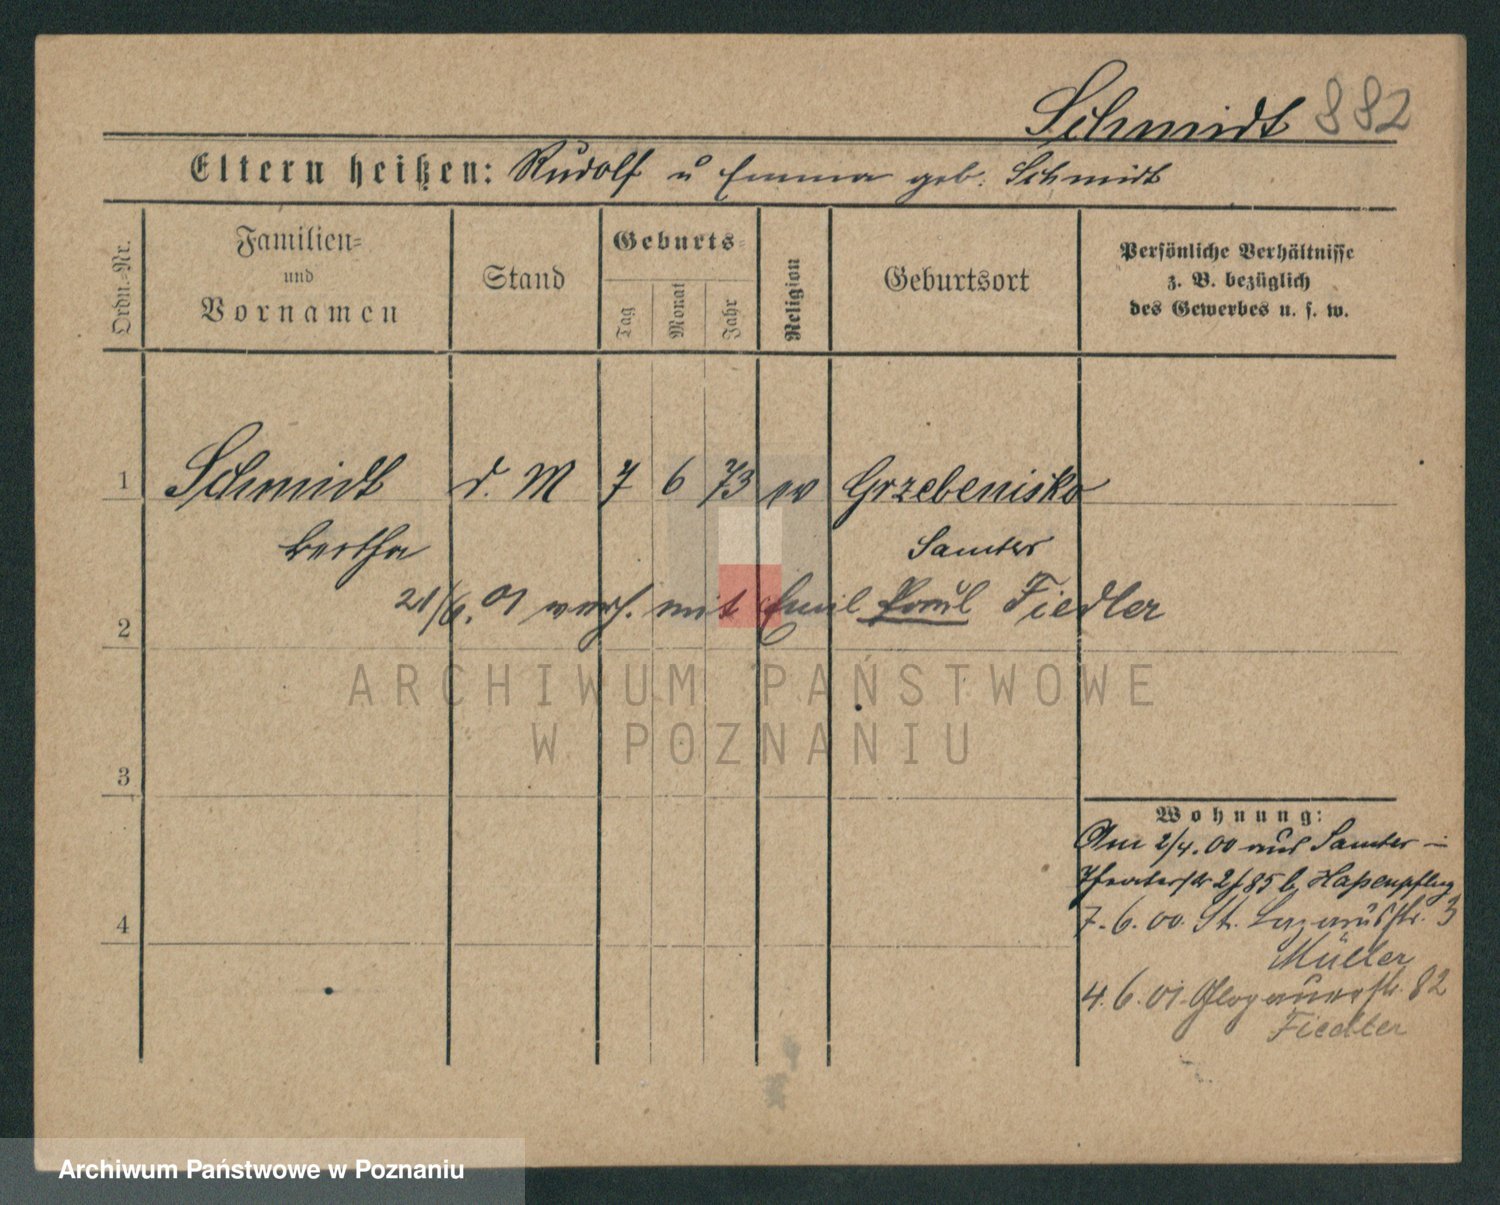 Schmidt 882
Eltern heißen: Rudolf u Emma geb. Schmidt
Ordn.-Nr.
Familien-
und
Vornamen
Stand
Geburts-
Tag
Monat
Jahr
Religion
Geburtsort
Persönliche Verhältnisse
z. B. bezüglich
des Gewerbes u. s. w.
1 Schmidt d. M 7 6 73 ev Grzebenisko
Bertha Samter
21/6.01 verh. mit Emil Paul Fiedler
2
ARCHIWUM PAŃSTWOWE
W POZNANIU
3
Wohnung:
Am 2/4.00 aus Samter
Theaterstr 2 b Haßenpflug
4
7.6.00. St. Lazarusstr. 3
Müller
4.6.01. Glogauerstr. 82
Fiedler
Archiwum Państwowe w Poznaniu